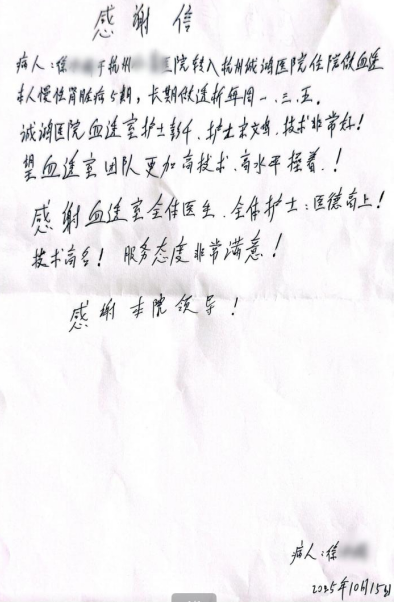 感谢信
病人:徐 于杭州 医院转入杭州诚湖医院住院做血透
本人慢性肾脏病5期,长期做透析每周一.三.五。
诚湖医院血透室护士彭千、护士宋文婷、技术非常好!
望血透室团队更加高技术、高水平接着.!
感谢血透室全体医生、全体护士:医德高上!
技术高名! 服务态度非常满意!
感谢本院领导!
病人:徐
2025年10月15日